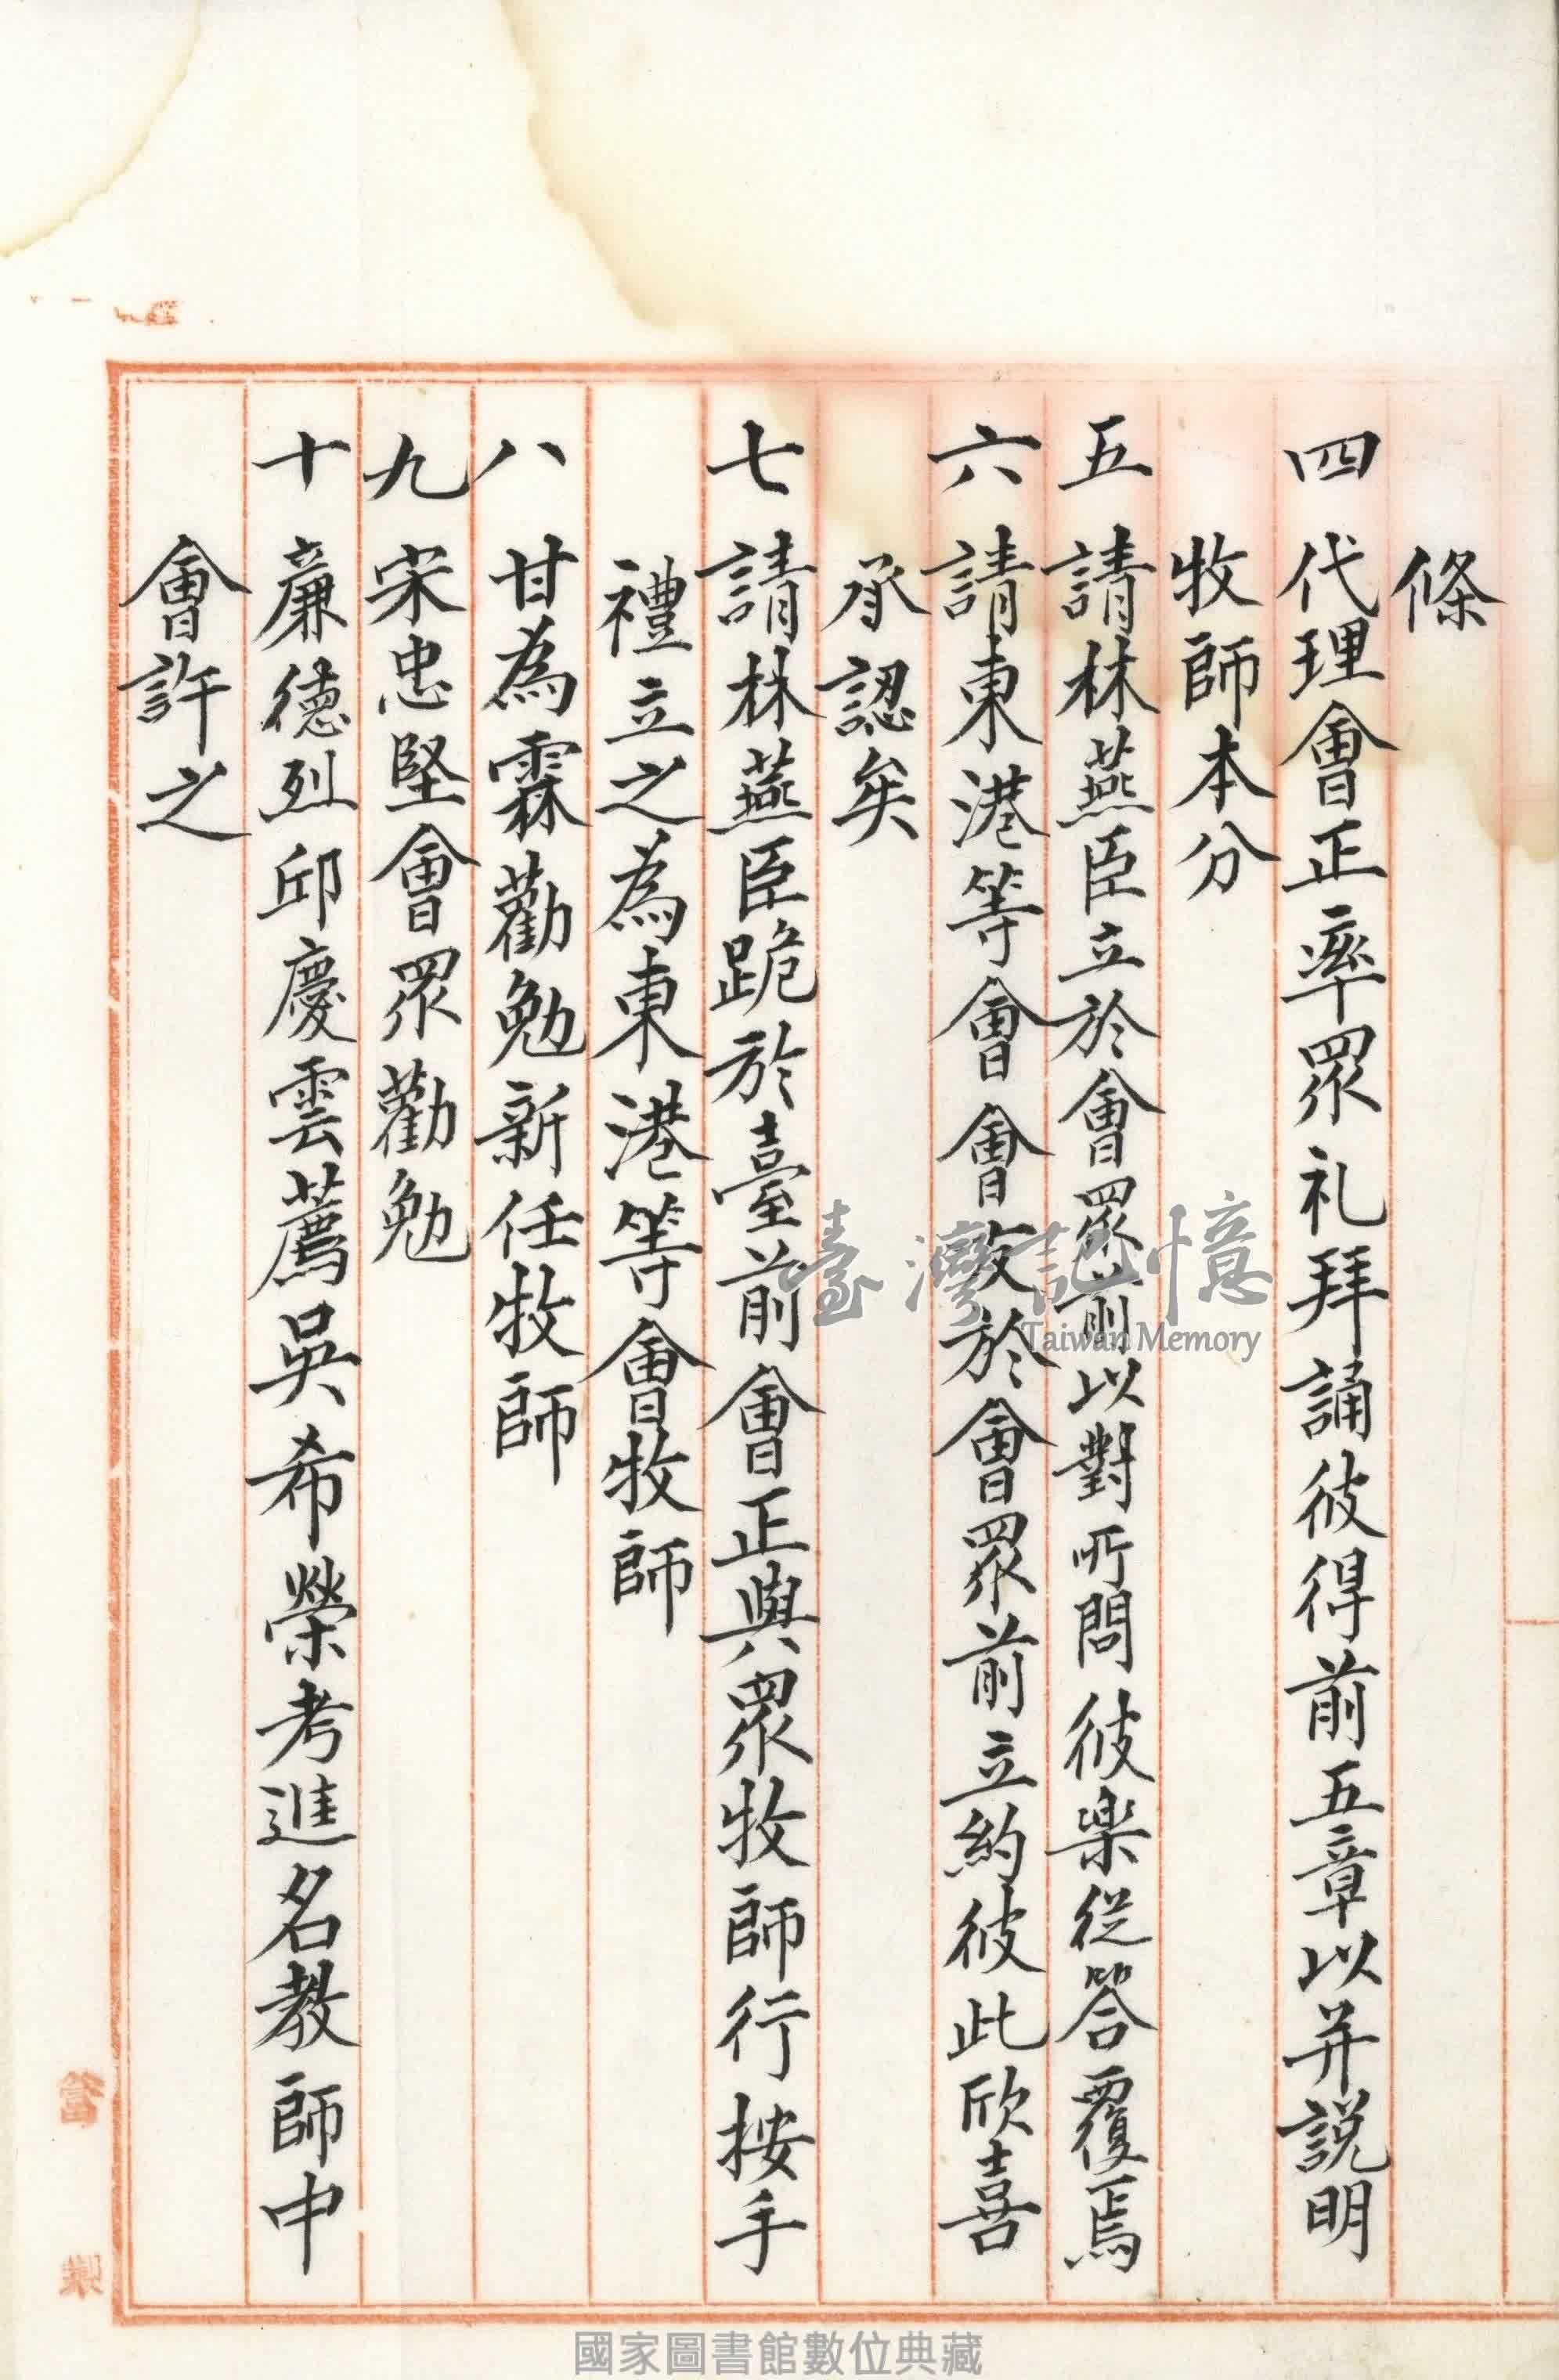 條
四 代理會正率眾礼拜誦彼得前五章以并説明
牧師本分
五 請林燕臣立於會眾前以對所問彼樂從答覆焉
六 請東港等會會友於會眾前立約彼此欣喜
承認矣
七 請林燕臣跪於臺前會正與眾牧師行按手
禮立之為東港等會牧師
八 甘為霖勸勉新任牧師
九 宋忠堅會眾勸勉
十 廉德烈邱慶雲薦吳希榮考進名教師中
會許之
臺灣記憶
Taiwan Memory
國家圖書館數位典藏